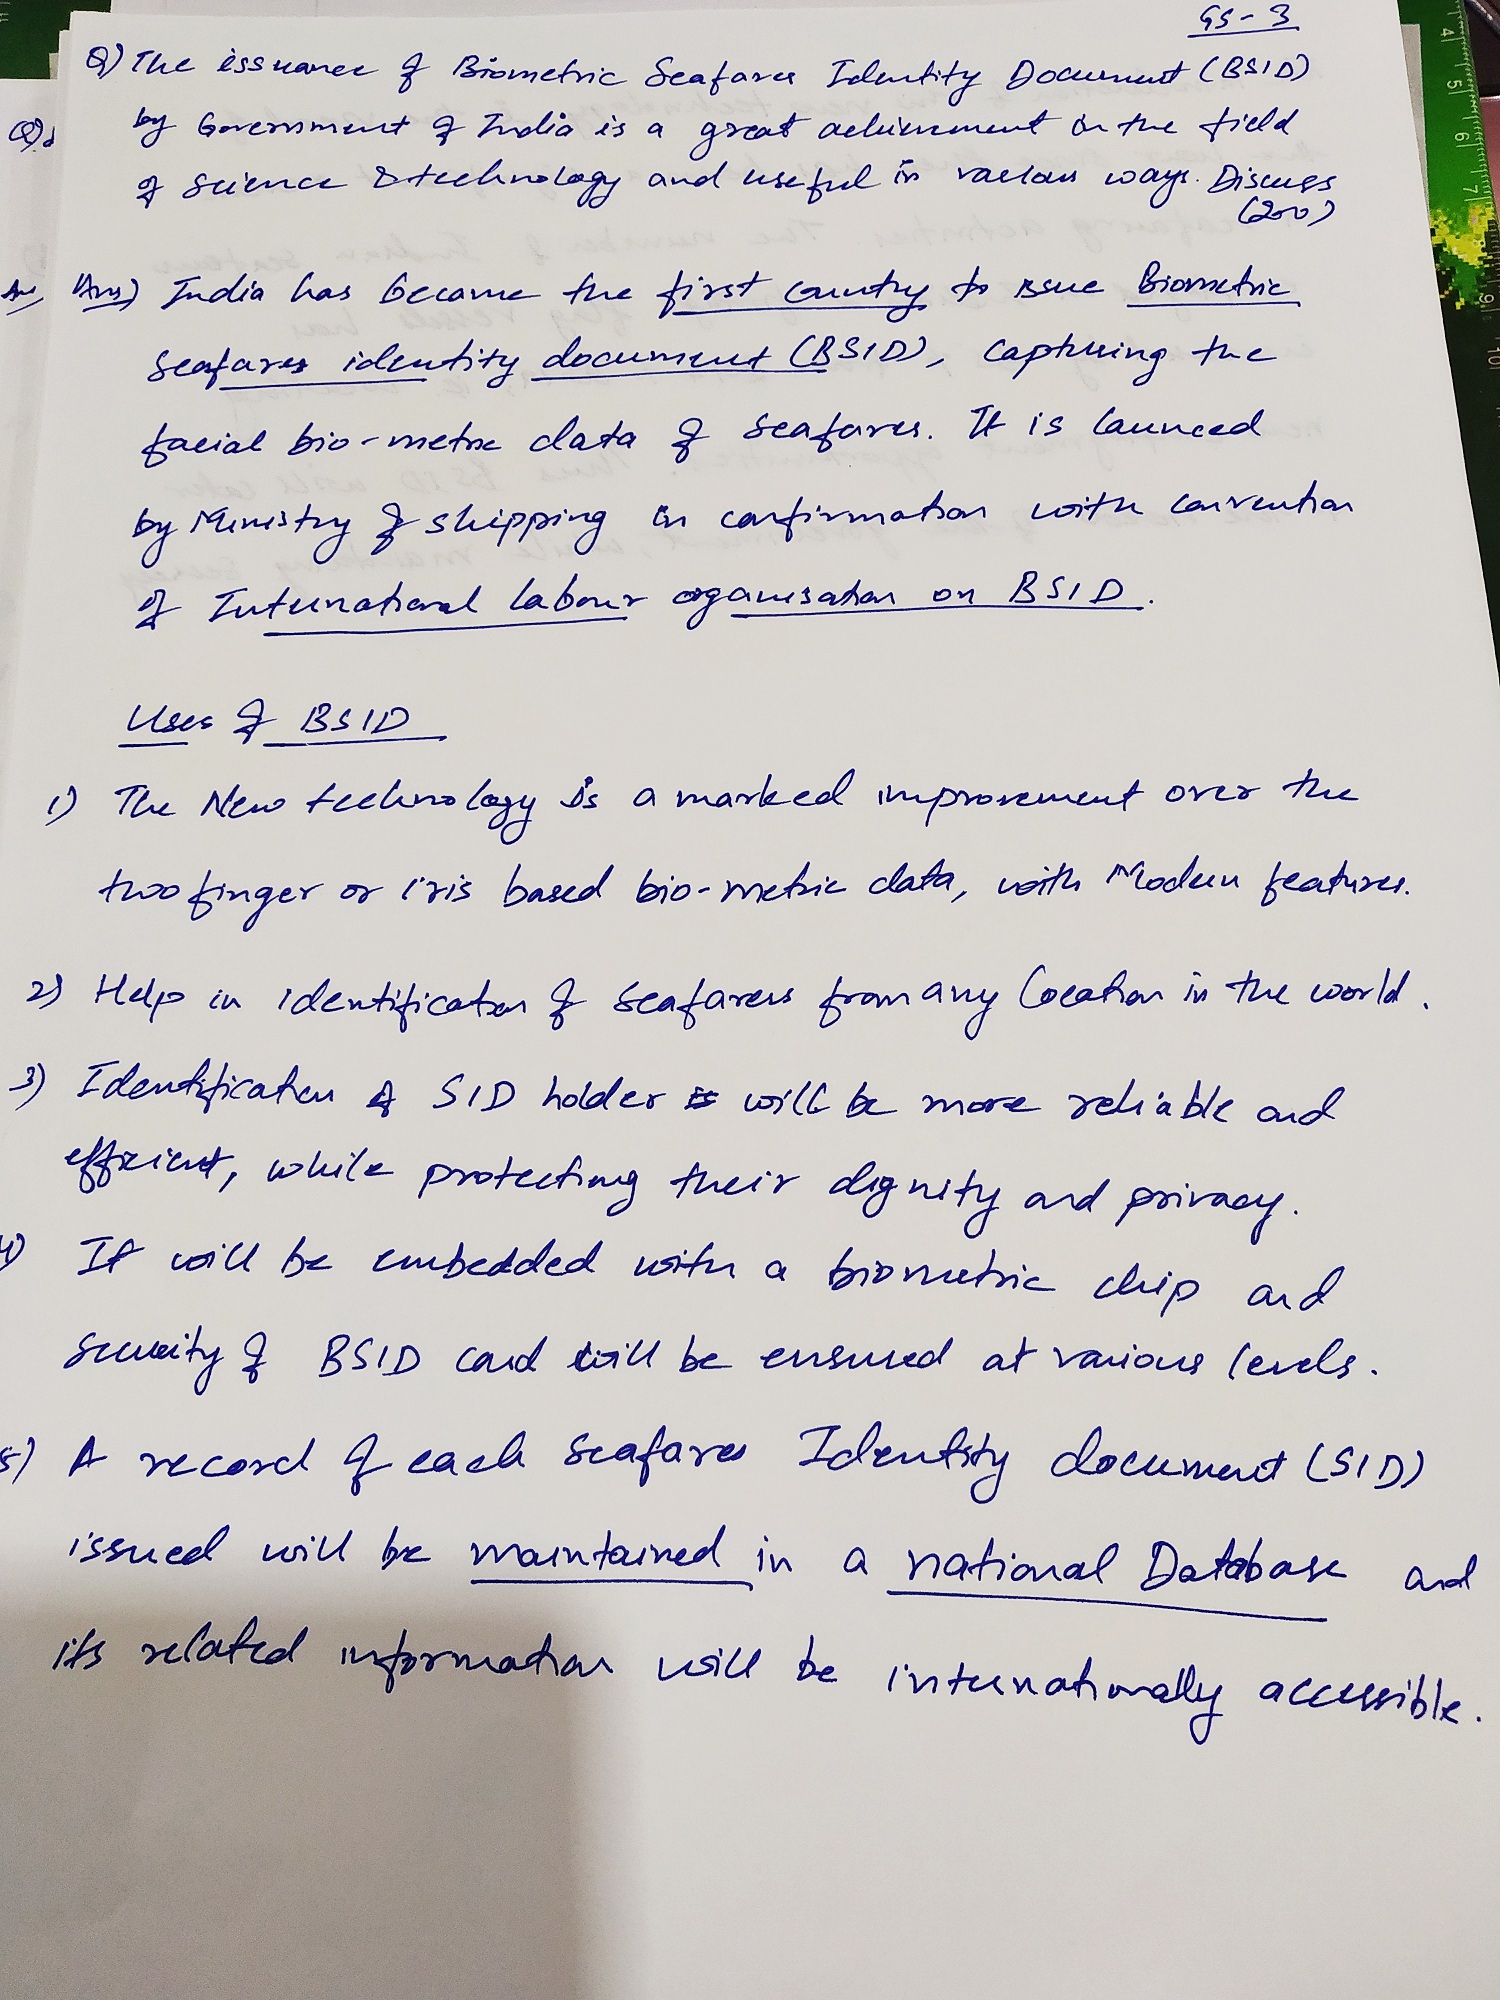 GS-3
Q) The issuance of Biometric Seafarer Identity Document (BSID)
by Government of India is a great achievement in the field
of science & technology and useful in various ways. Discuss
(200)
Ans) India has became the first country to issue Biometric
Seafarer identity document (BSID), capturing the
facial bio-metric data of seafarers. It is launced
by Ministry of shipping in confirmation with convention
of International labour organisation on BSID.
Uses of BSID
1) The New technology is a marked improvement over the
two finger or iris based bio-metric data, with Modern features.
2) Help in identification of seafarers from any location in the world.
3) Identification of SID holder will be more reliable and
efficient, while protecting their dignity and privacy.
4) It will be embedded with a biometric chip and
security of BSID card will be ensured at various levels.
5) A record of each seafarer Identity document (SID)
issued will be maintained in a national Database and
its related information will be internationally accessible.